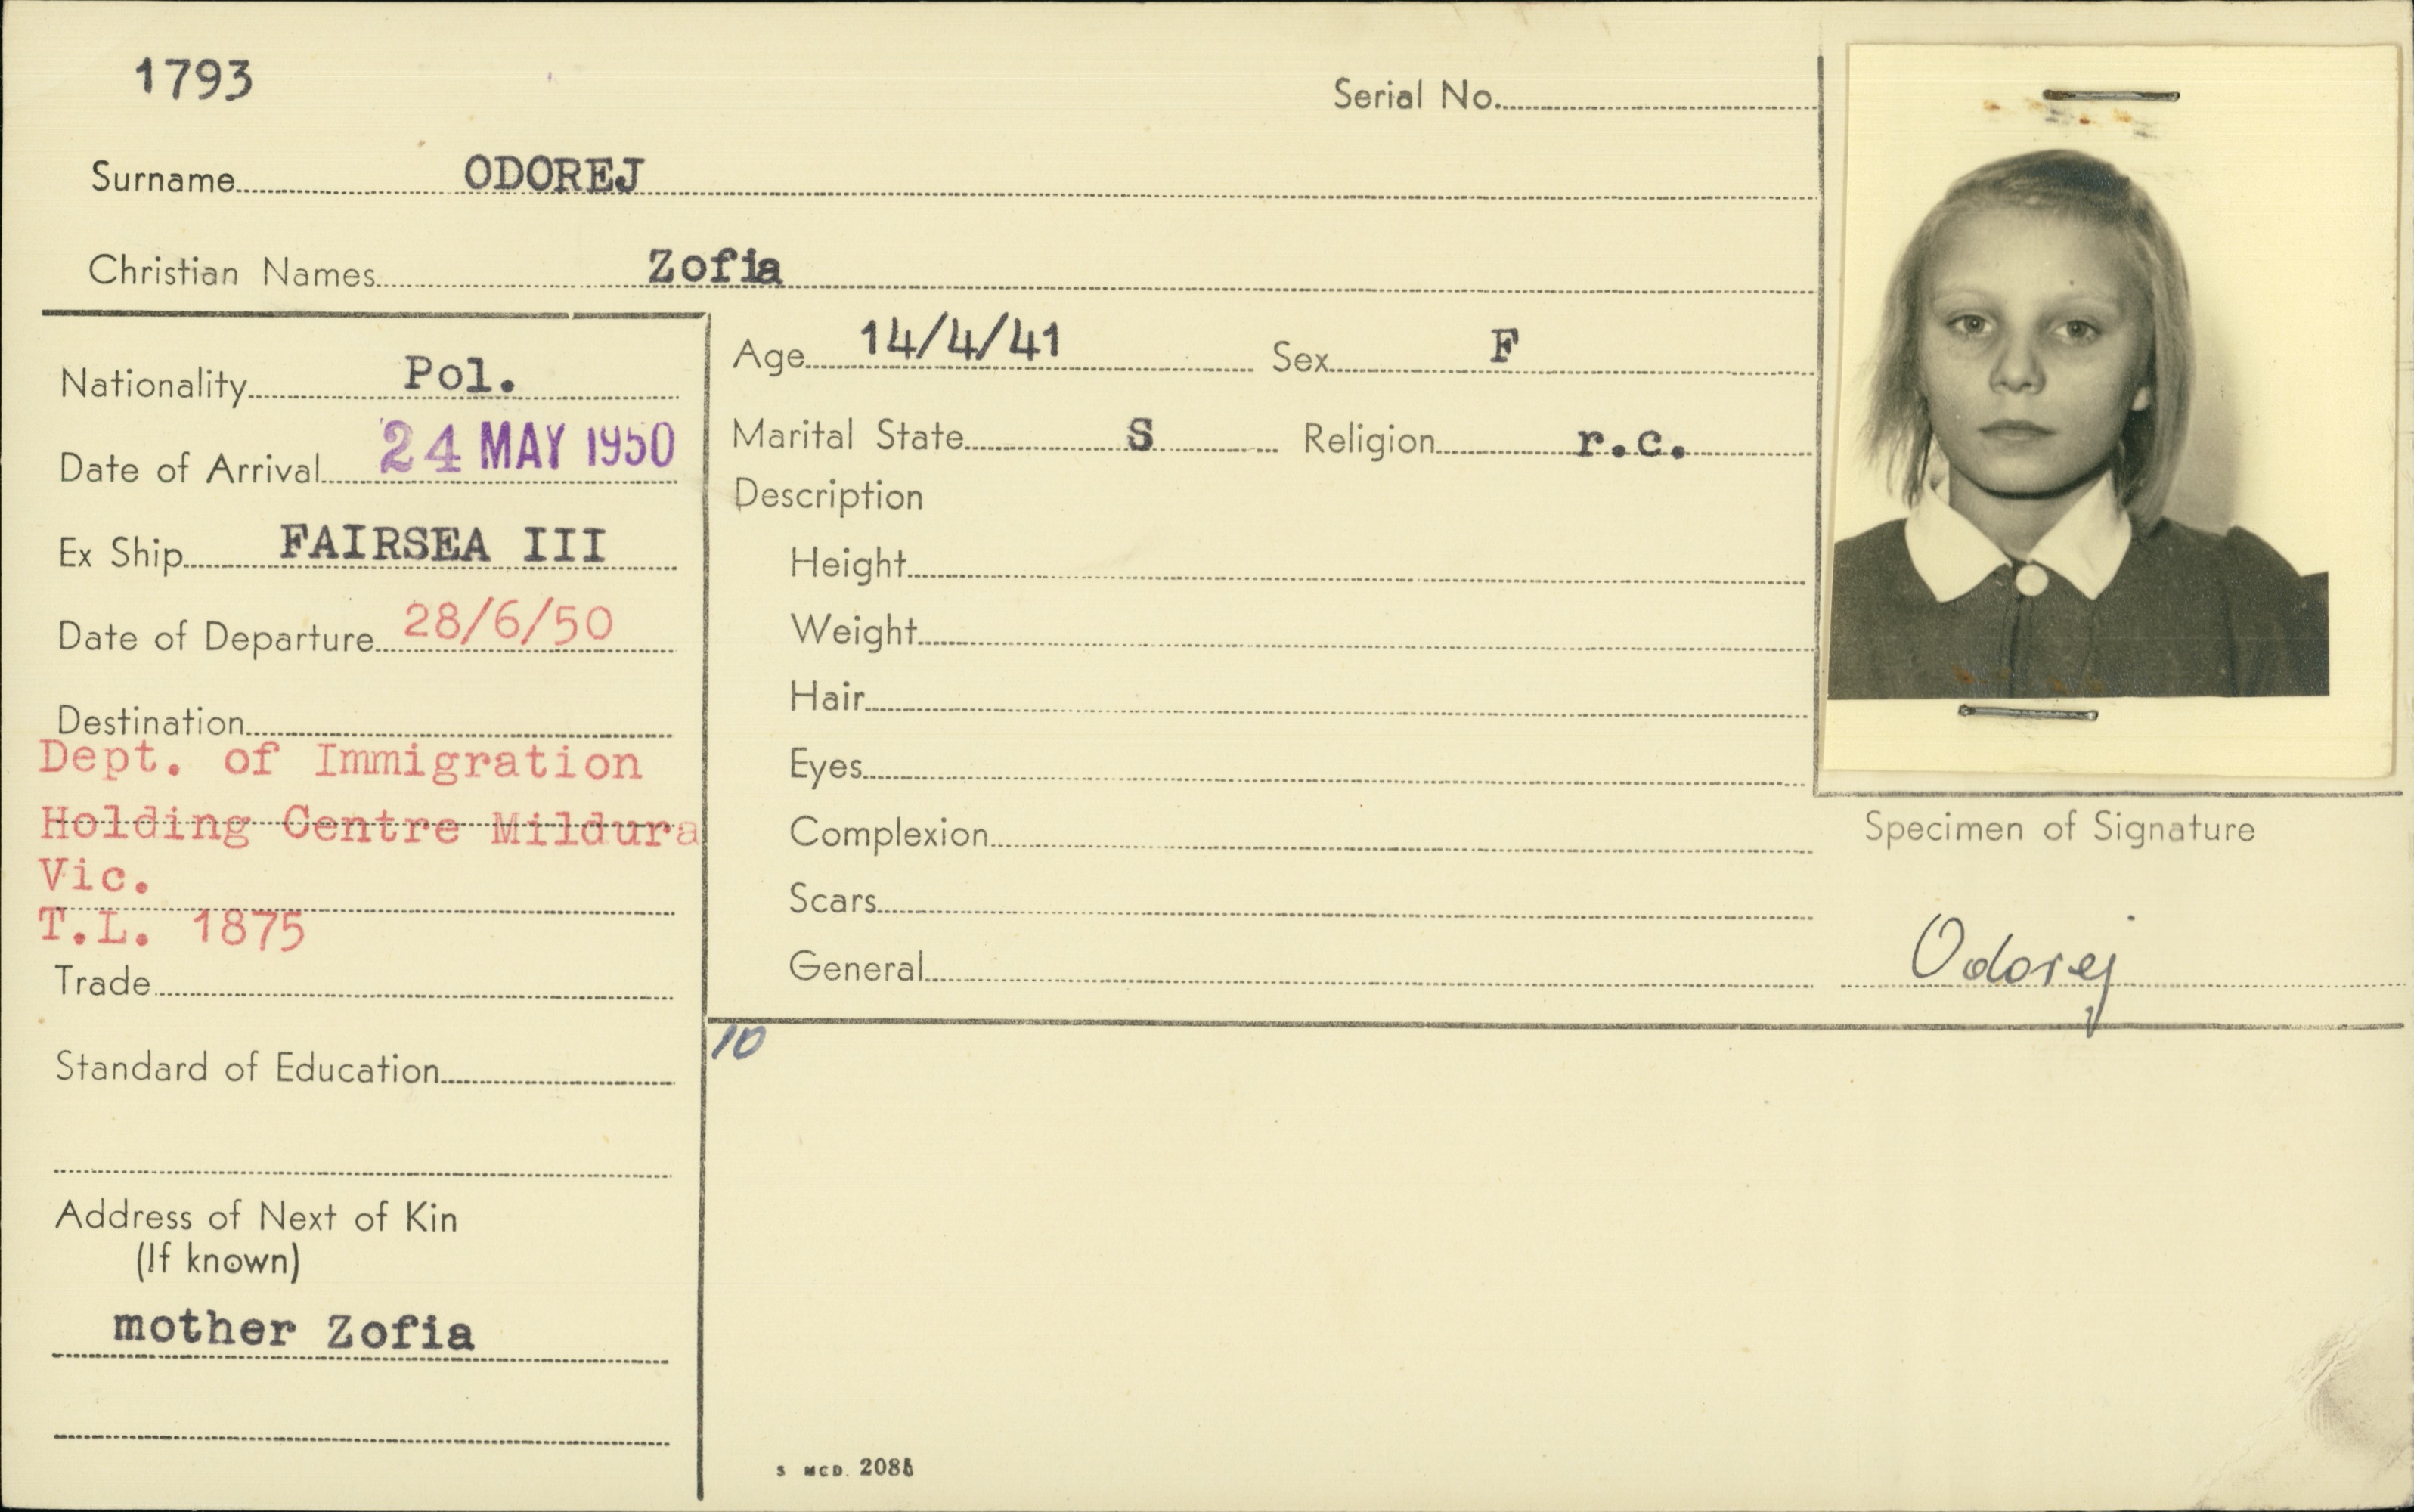 1793
Serial No.
Surname ODOREJ
Christian Names Zofia
Nationality Pol.
Date of Arrival 24 MAY 1950
Ex Ship FAIRSEA III
Date of Departure 28/6/50
Destination
Dept. of Immigration
Holding Centre Mildura
Vic.
T.L. 1875
Trade
Standard of Education
Address of Next of Kin
(If known)
mother Zofia
Age 14/4/41 Sex F
Marital State S Religion r.c.
Description
Height
Weight
Hair
Eyes
Complexion
Scars
General
Specimen of Signature
Odorej
10
S MCD.